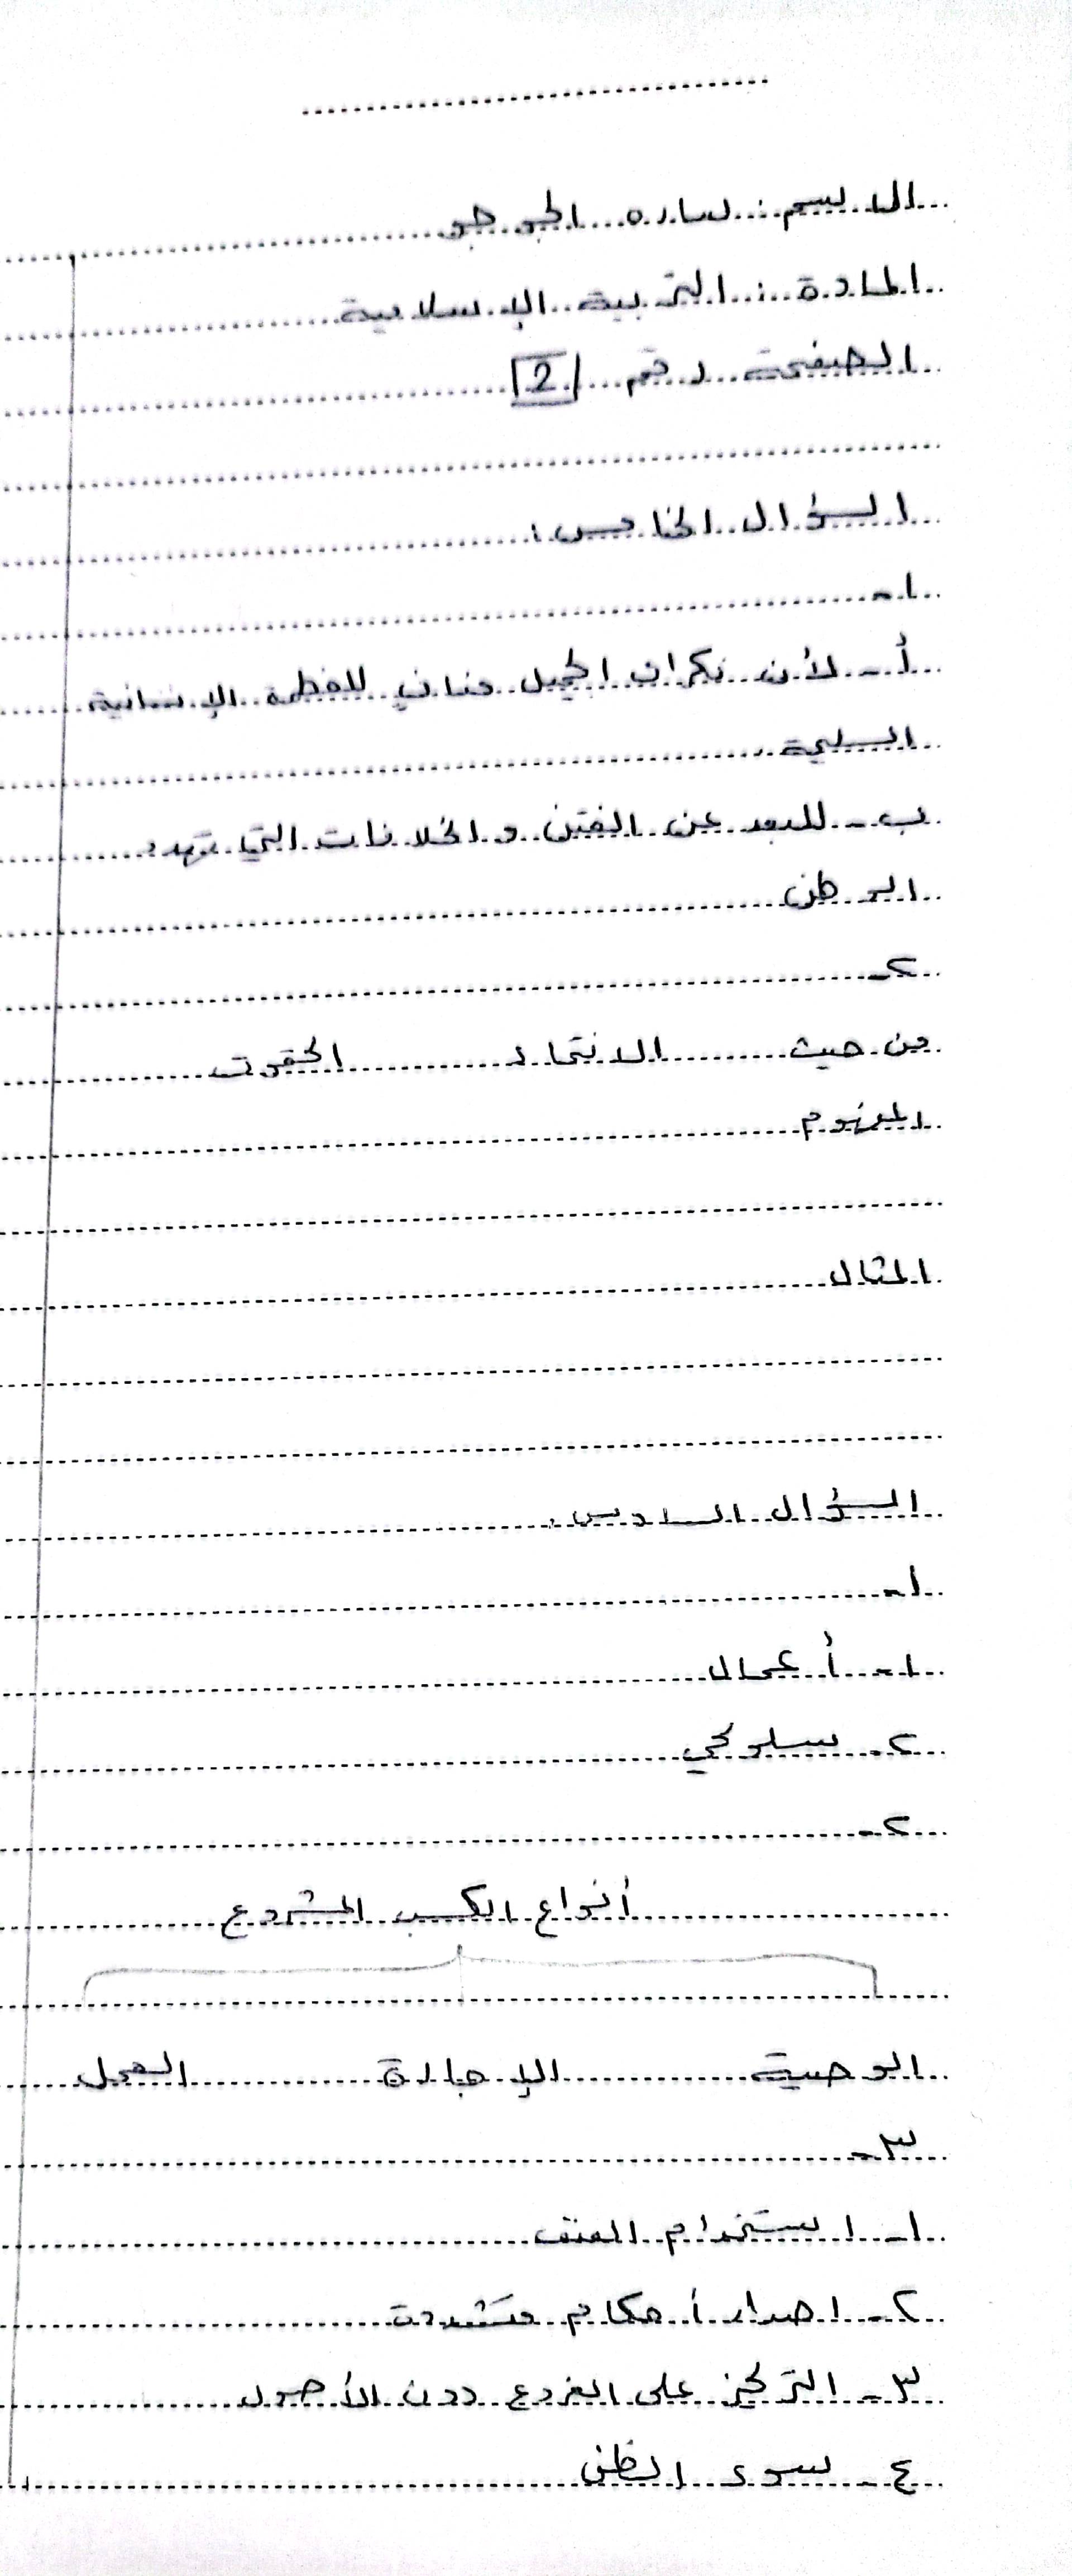 الاسم : ساره الجوجو
المادة : التربية الإسلامية
الصفحة رقم 2
السؤال الخامس :
١-
أ- لأن نكران الجميل منافي للفطرة الإنسانية
السليمة
ب- للبعد عن الفتن و الخلافات التي تهدد
الوطن
٢-
من حيث الانتماء الحقوق
المفهوم
المثال
السؤال السادس :
١-
١- أعمال
٢- سلوكي
٢-
أنواع الكسب المشروع
الوصية الإجارة العمل
٣-
١- استخدام العنف
٢- اصدار أحكام متشددة
٣- التركيز على الفروع دون الأصول
٤- سوء الظن